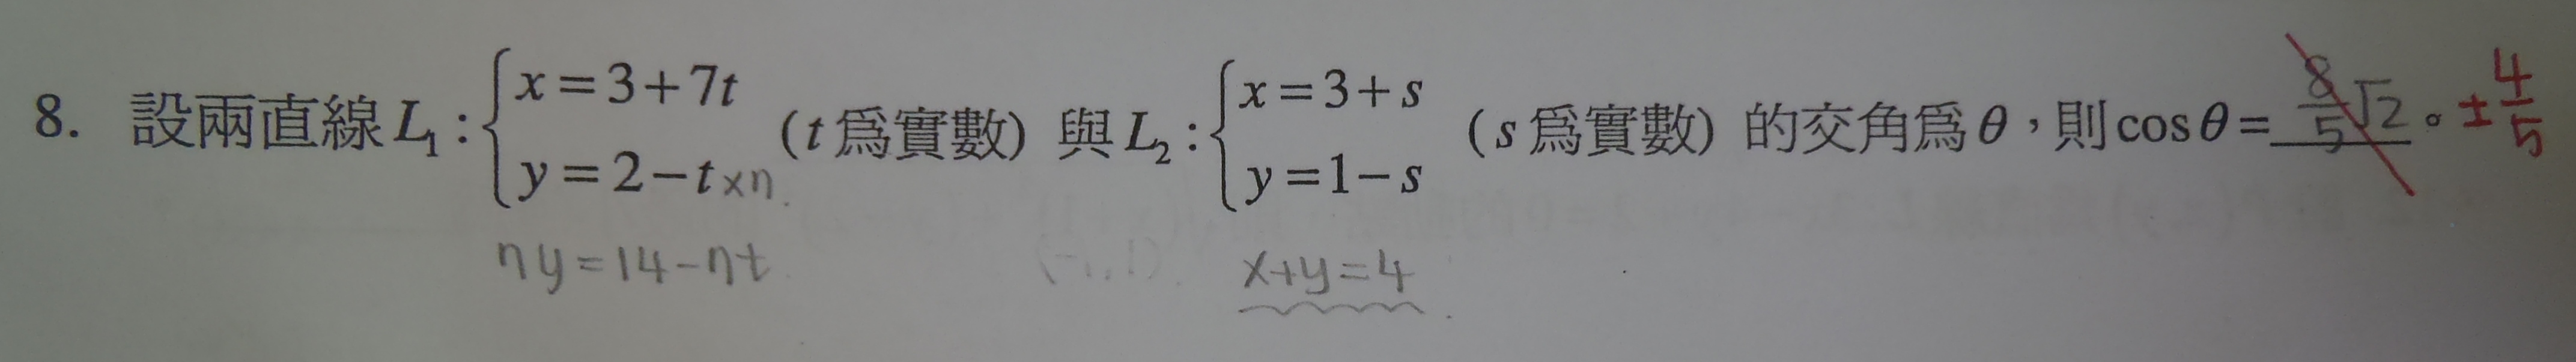 8. 設兩直線 L₁ : { x = 3 + 7t, y = 2 − t (t 為實數) 與 L₂ : { x = 3 + s, y = 1 − s (s 為實數) 的交角為 θ，則 cos θ = 8/5 √2 。 ± 4/5
×7
7y = 14 − 7t
x + y = 4